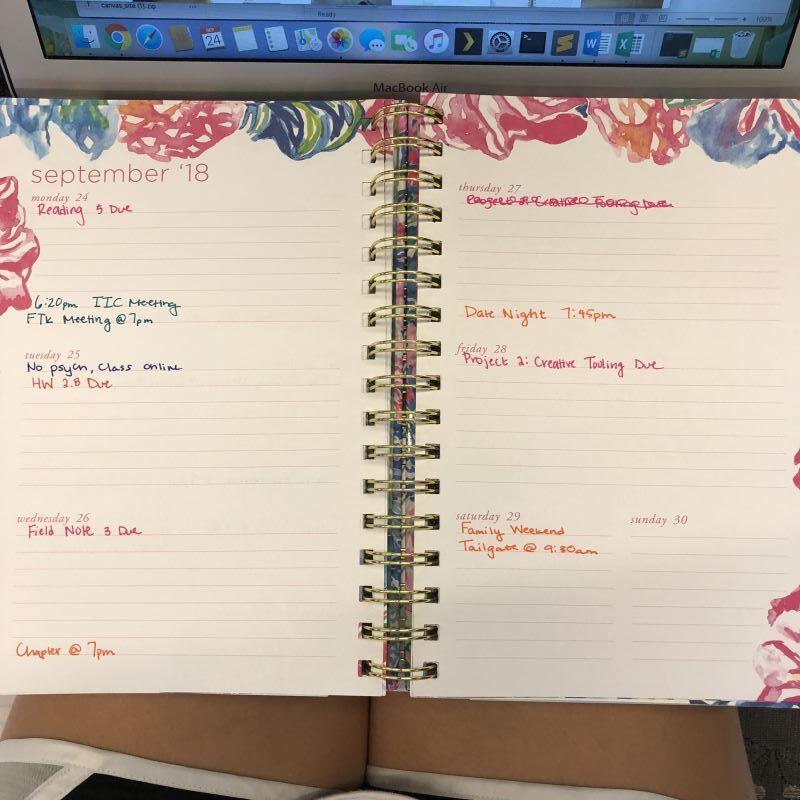 canvas_site (1).zip
Ready
100%
SEP
24
MacBook Air
september '18
monday 24
Reading 5 Due
6:20pm IIC Meeting
FTK Meeting @ 7pm
tuesday 25
No psych, class online
HW 2.8 Due
wednesday 26
Field Note 3 Due
Chapter @ 7pm
thursday 27
Project 2: Creative Tooling Due
Date Night 7:45pm
friday 28
Project 2: Creative Tooling Due
saturday 29
Family Weekend
Tailgate @ 9:30am
sunday 30